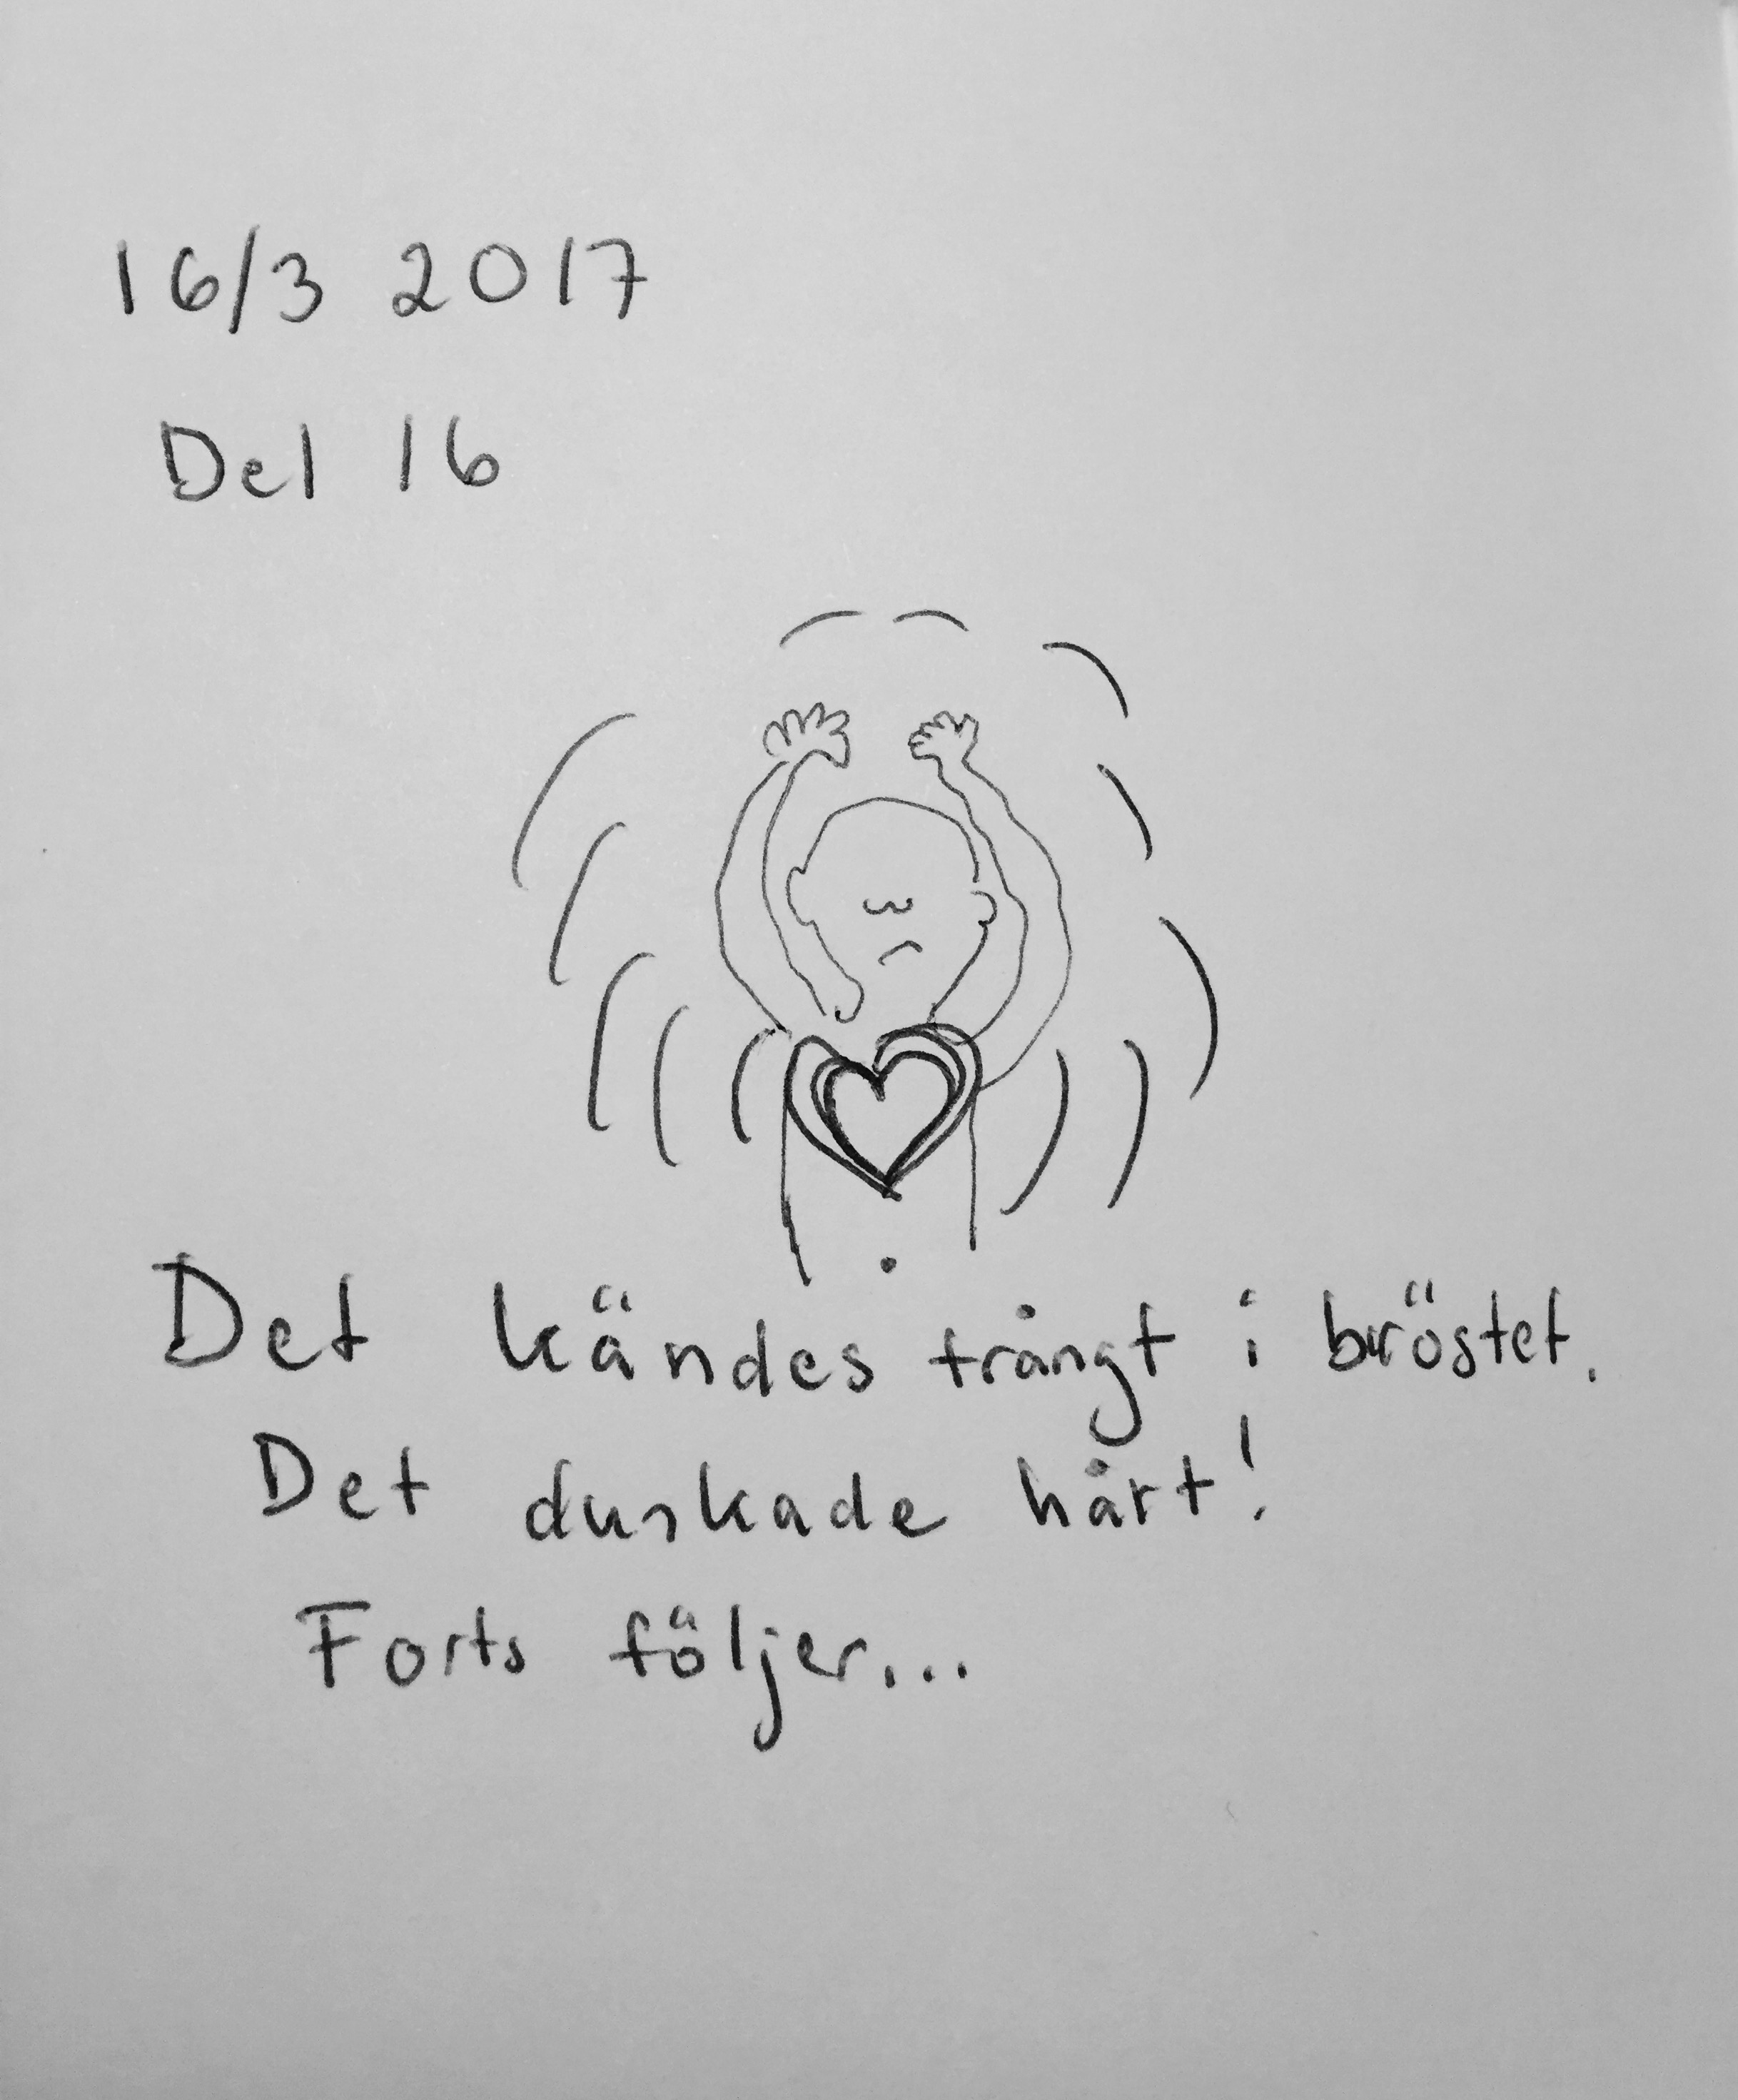 16/3 2017
Del 16
Det kändes trångt i bröstet.
Det dunkade hårt!
Forts följer...